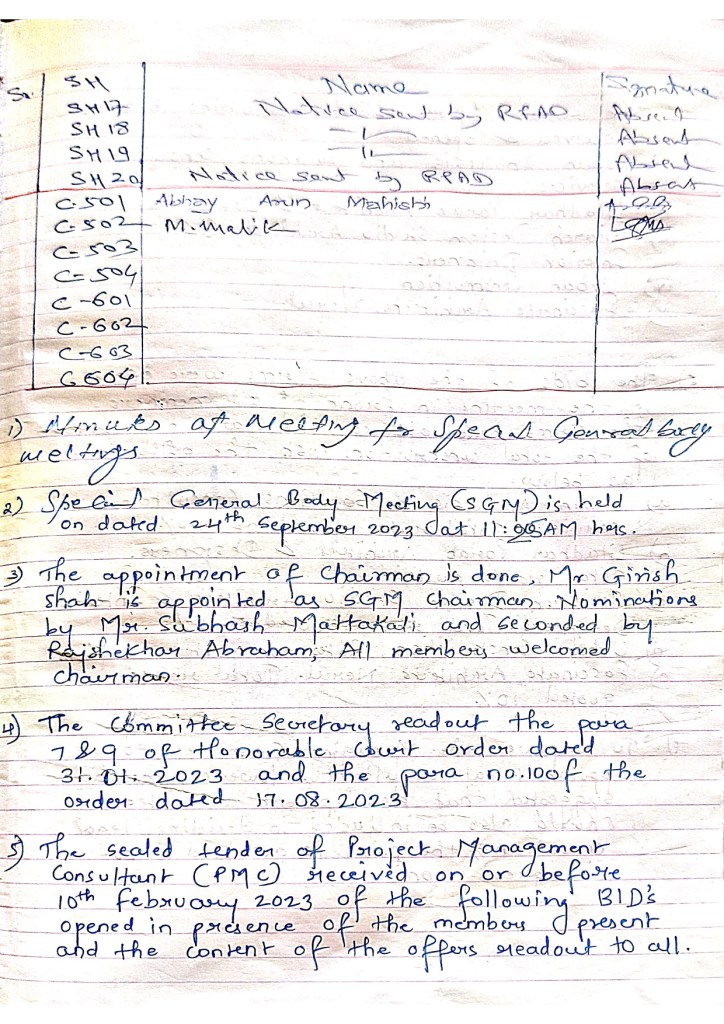 Sr. SH Name Signature
SH 17 Notice sent by RPAD Absent
SH 18 —"— Absent
SH 19 —"— Absent
SH 20 Notice sent by RPAD Absent
C-501 Abhay Arun Mahishi
C-502 M. Malik
C-503
C-504
C-601
C-602
C-603
C 604
1) Minutes of Meeting for Special General body
meetings
2) Special General Body Meeting (SGM) is held
on dated 24th September 2023 at 11:05AM hrs.
3) The appointment of Chairman is done, Mr Girish
Shah is appointed as SGM Chairman. Nominations
by Mr. Subhash Mattakali and seconded by
Rajshekhar Abraham, All members welcomed
chairman.
4) The Committee Secretary readout the para
7 & 9 of Honorable Court order dated
31.01.2023 and the para no.10 of the
order dated 17.08.2023
5) The sealed tender of Project Management
Consultant (PMC) received on or before
10th february 2023 of the following BID's
opened in presence of the members present
and the content of the offers readout to all.